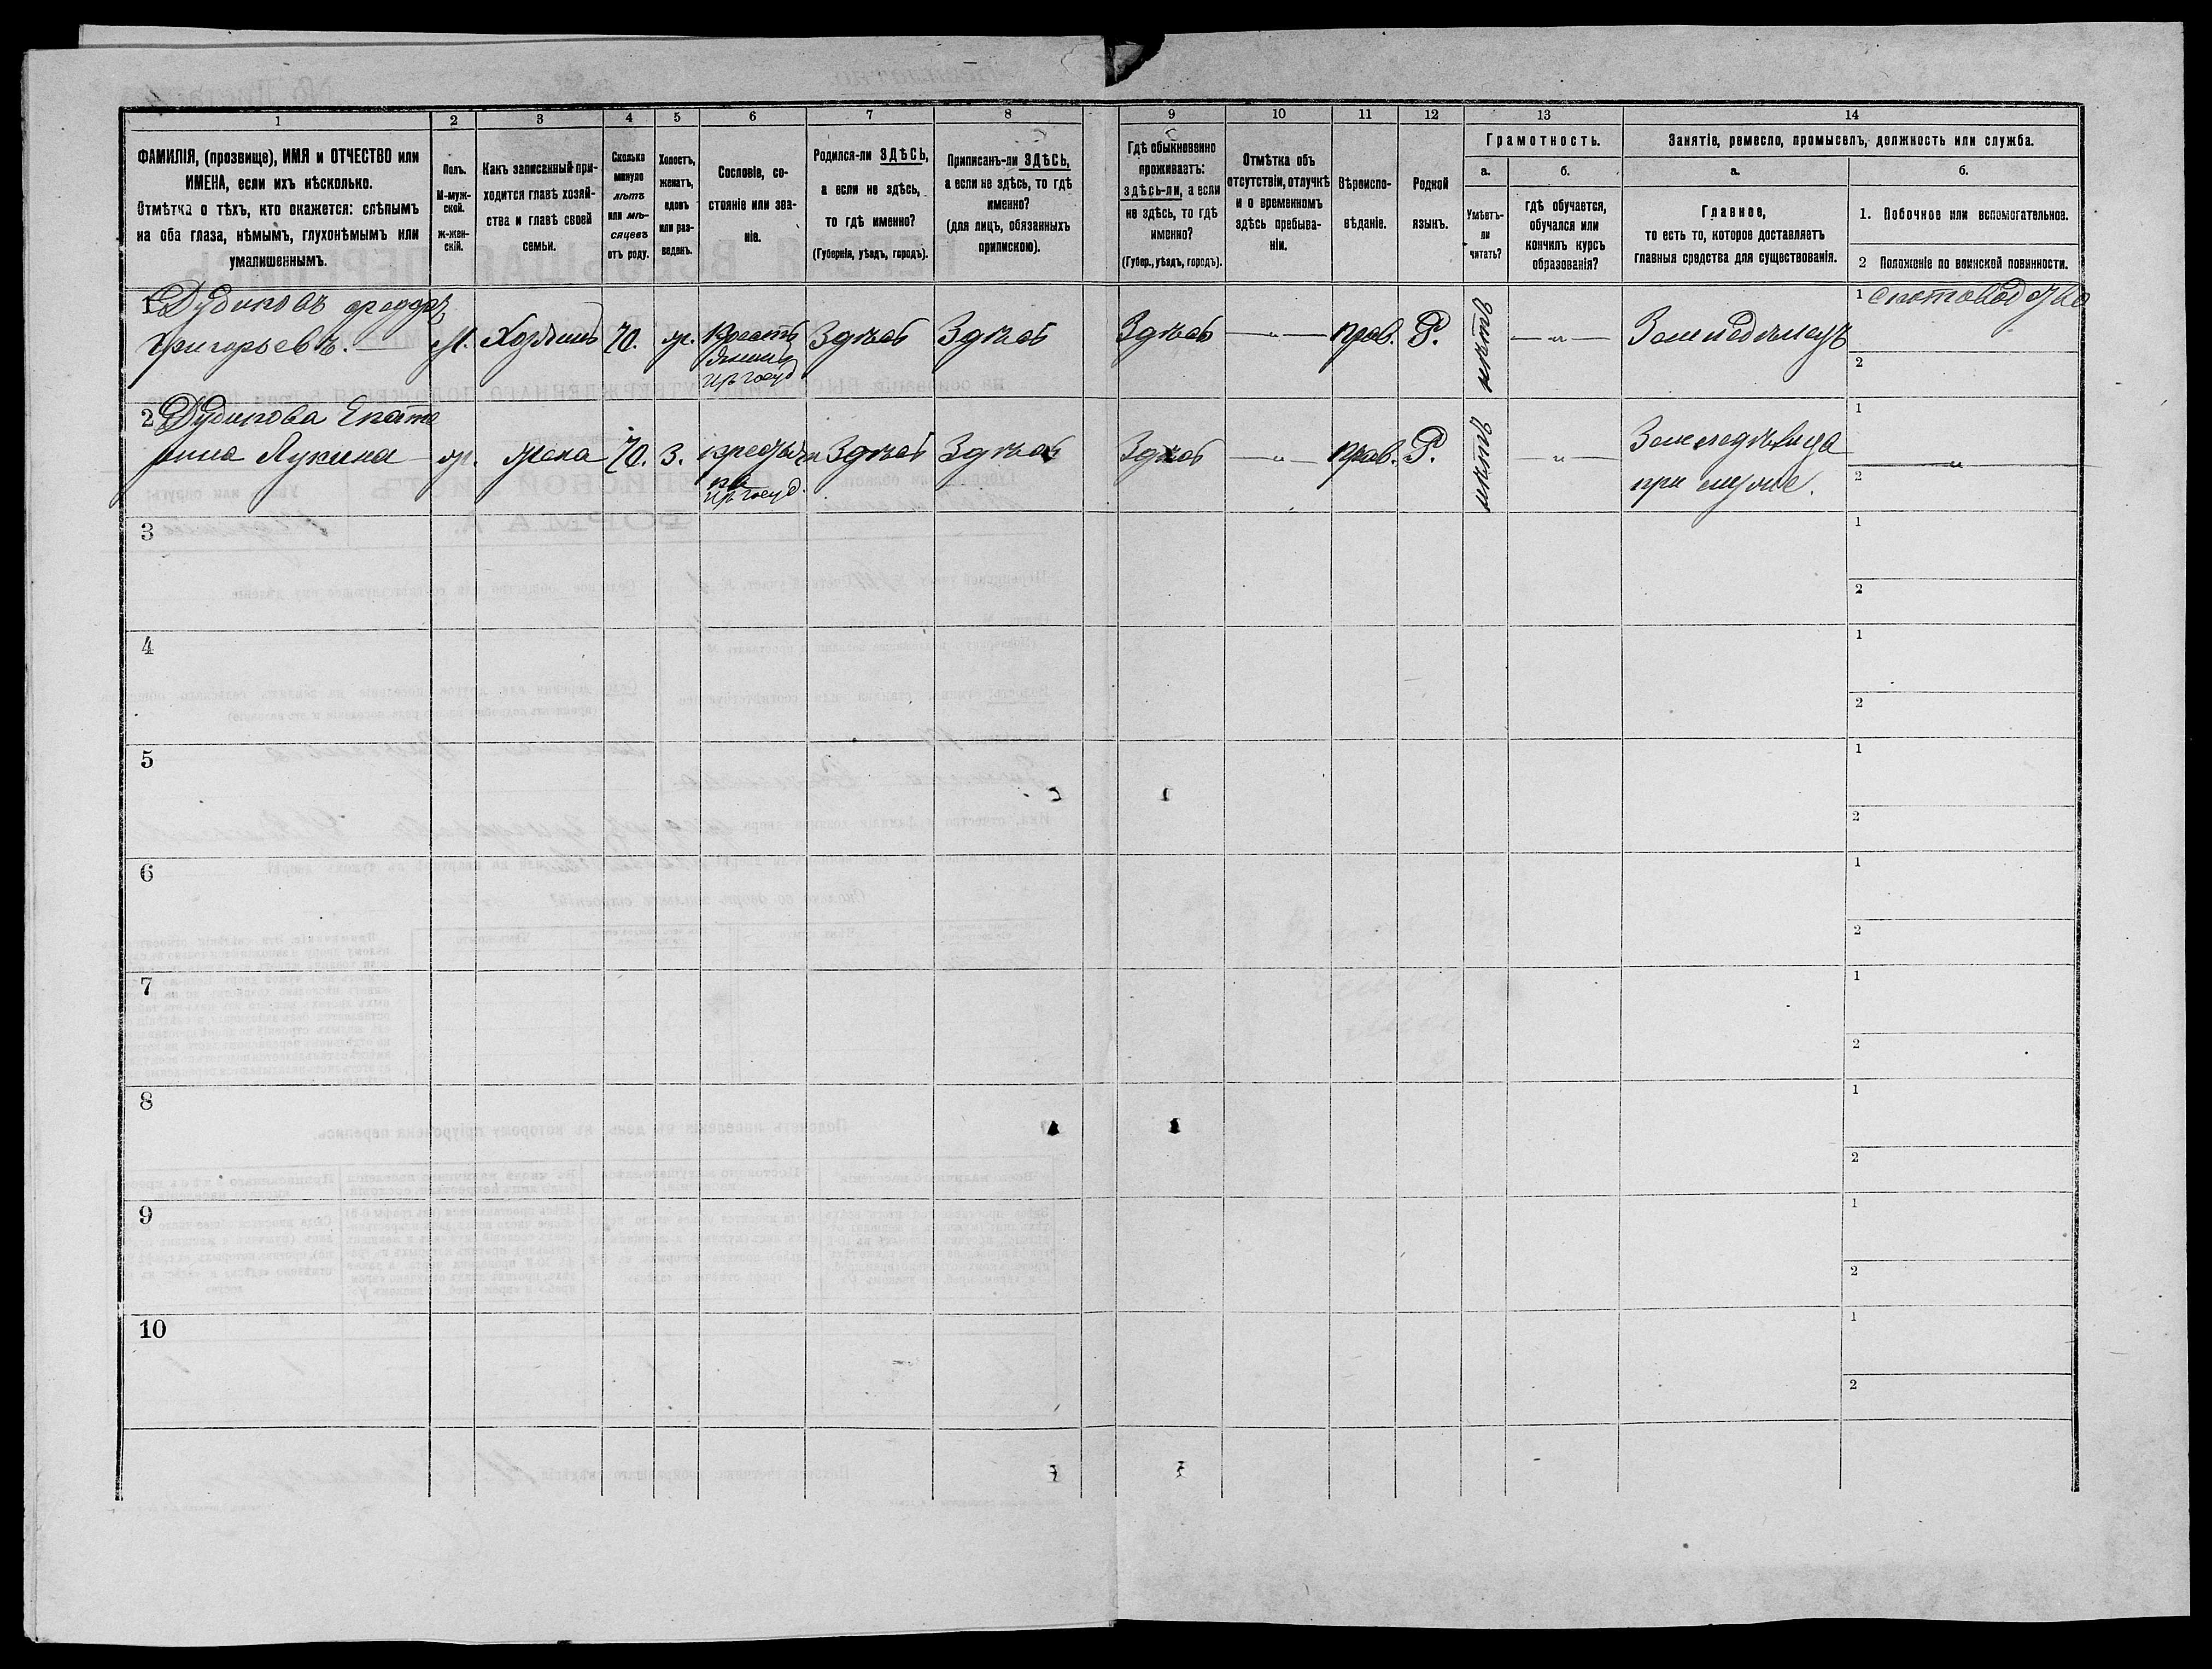 1
2
3
4
5
6
7
8
9
10
11
12
13
14
ФАМИЛІЯ, (прозвище), ИМЯ и ОТЧЕСТВО или
ИМЕНА, если ихъ нѣсколько.
Отмѣтка о тѣхъ, кто окажется: слѣпымъ
на оба глаза, нѣмымъ, глухонѣмымъ или
умалишеннымъ.
Полъ.
М-муж-
ской.
ж-жен-
скій.
Какъ записанный при-
ходится главѣ хозяй-
ства и главѣ своей
семьи.
Сколько
минуло
лѣтъ
или мѣ-
сяцевъ
отъ роду.
Холостъ,
женатъ,
вдовъ
или раз-
веденъ.
Сословіе, со-
стояніе или зва-
ніе.
Родился-ли ЗДѢСЬ,
а если не здѣсь,
то гдѣ именно?
(Губернія, уѣздъ, городъ).
Приписанъ-ли ЗДѢСЬ,
а если не здѣсь, то гдѣ
именно?
(для лицъ, обязанныхъ
припискою).
Гдѣ обыкновенно
проживаетъ:
здѣсь-ли, а если
не здѣсь, то гдѣ
именно?
(Губер., уѣздъ, городъ).
Отмѣтка объ
отсутствіи, отлучкѣ
и о временномъ
здѣсь пребыва-
ніи.
Вѣроиспо-
вѣданіе.
Родной
языкъ.
Грамотность.
а.
Умѣетъ-
ли
читать?
б.
гдѣ обучается,
обучался или
кончилъ курсъ
образованія?
Занятіе, ремесло, промыселъ, должность или служба.
а.
Главное,
то есть то, которое доставляетъ
главныя средства для существованія.
б.
1. Побочное или вспомогательное.
2 Положеніе по воинской повинности.
1 Дудиновъ Федоръ
Григорьевъ.
М. Хозяинъ 70. ж. Крестьянинъ
изъ госуд
Здѣсь Здѣсь Здѣсь — „ — прав. Р. нѣтъ — „ — Земледѣлецъ
1 скотоводство
2
2 Дудинова Екате
рина Лукина
ж. жена 70. З. крестьян
ка
изъ госуд.
Здѣсь Здѣсь Здѣсь — „ — прав. Р. нѣтъ — „ — Земледѣлица
при мужѣ.
1
„
2
3
1
2
4
1
2
5
1
2
6
1
2
7
1
2
8
1
2
9
1
2
10
1
2